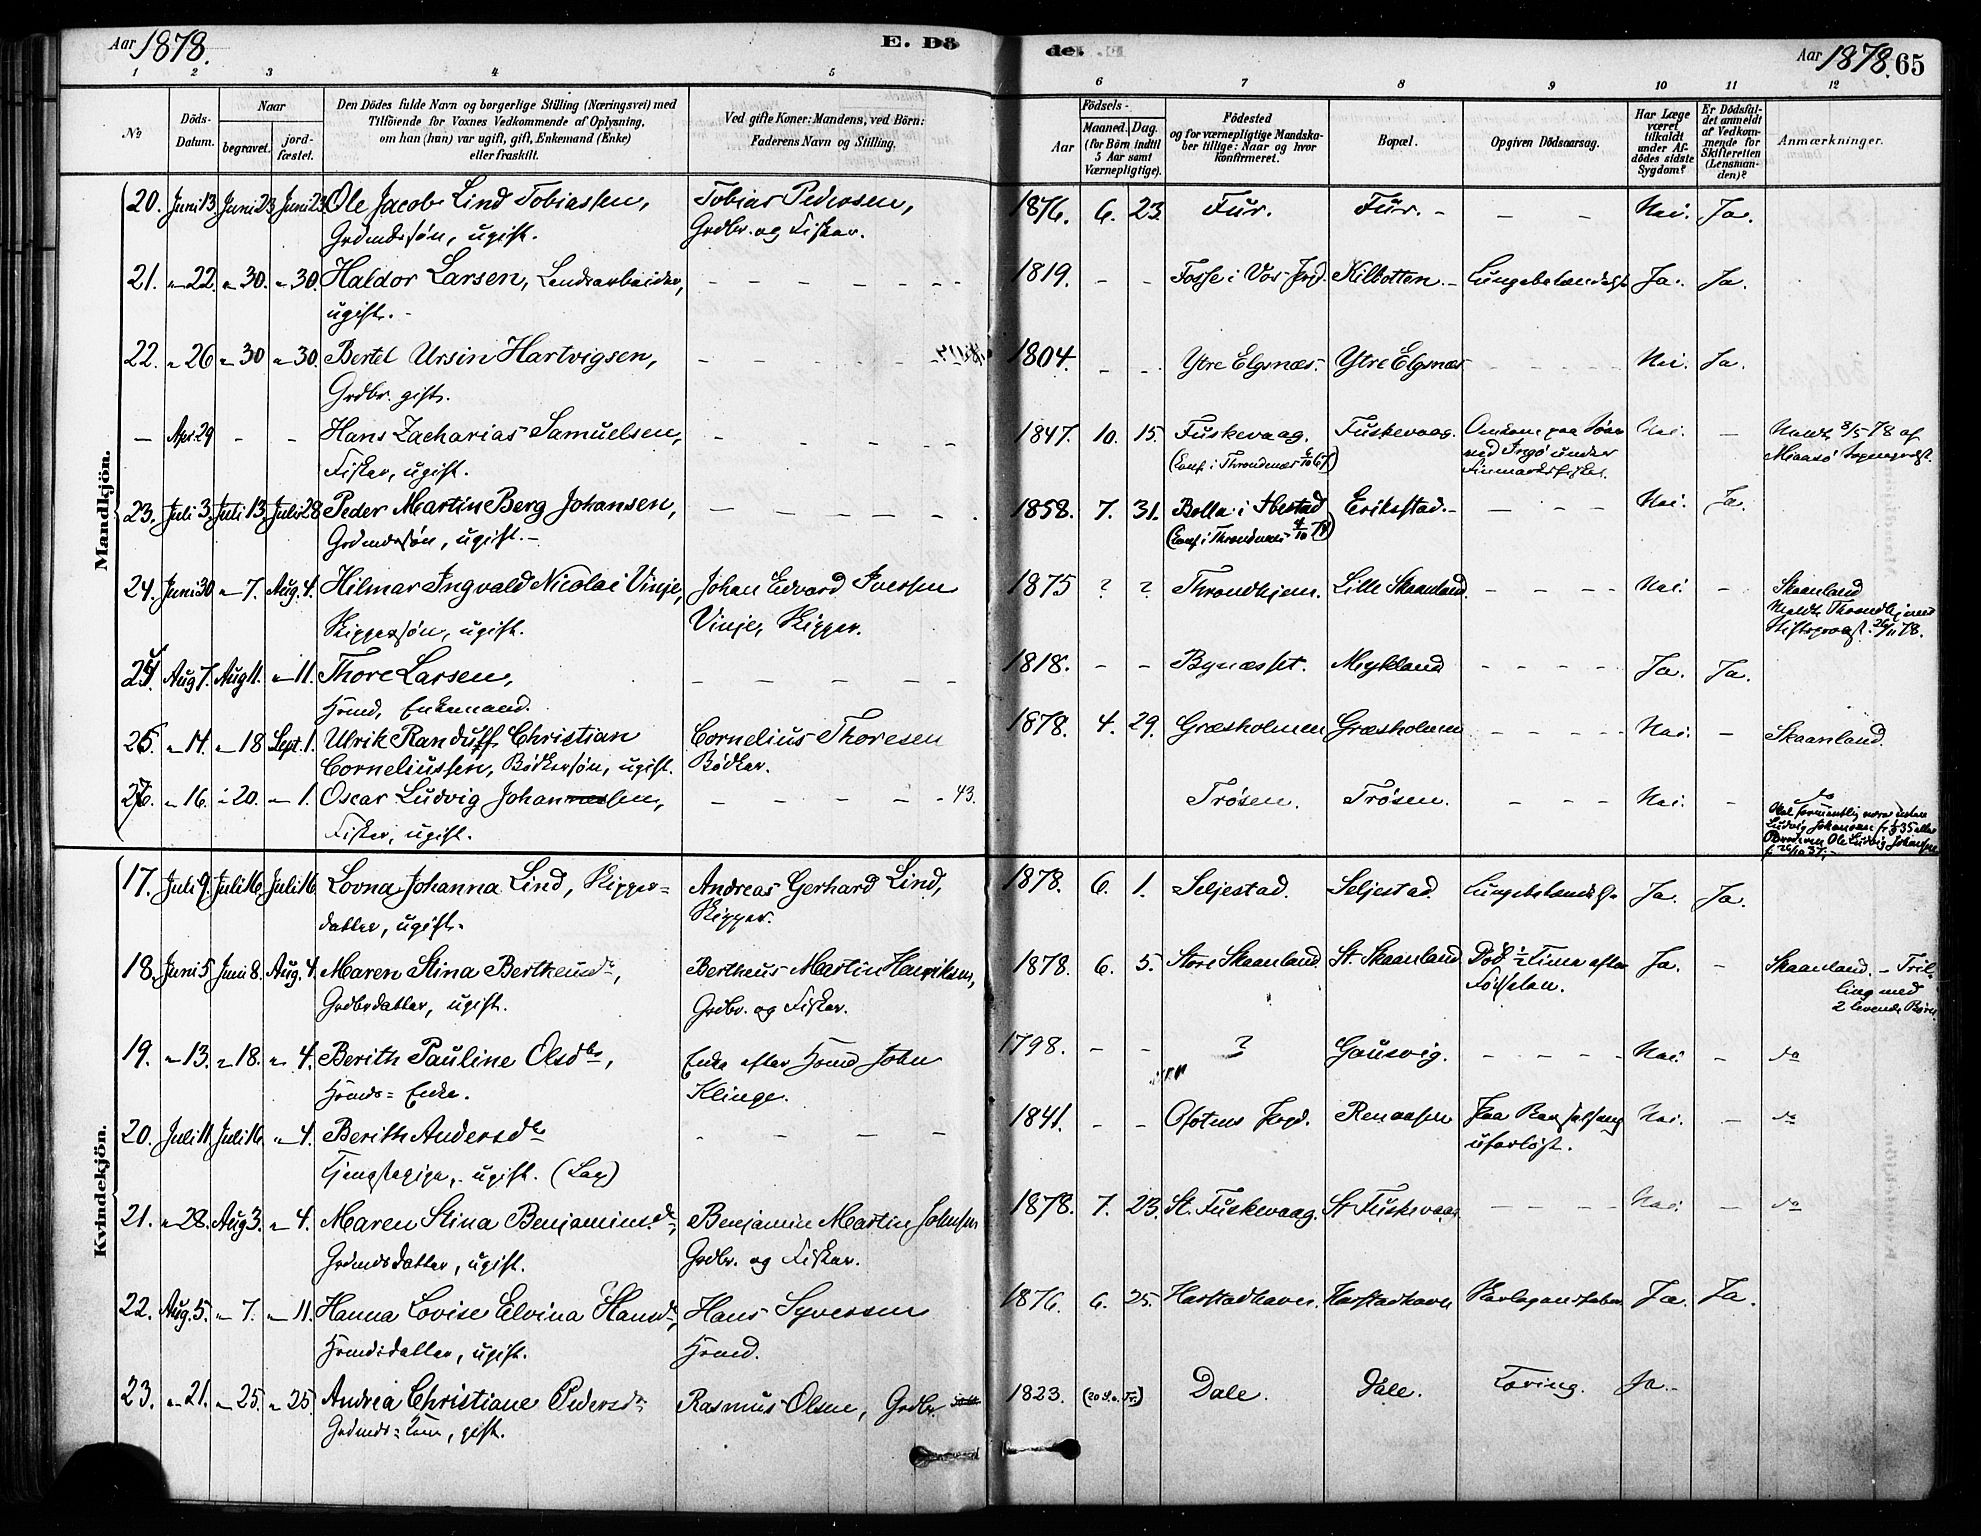 Aar 1878.
E. Dö
de.
Aar 1878. 65
1 2 3 4 5 6 7 8 9 10 11 12
No
Döds-Datum.
Naar
begravet.
jord-fæstet.
Den Dödes fulde Navn og borgerlige Stilling (Næringsvei) med
Tilföiende for Voxnes Vedkommende af Oplysning,
om han (hun) var ugift, gift, Enkemand (Enke)
eller fraskilt.
Ved gifte Koner: Mandens, ved Börn:
Faderens Navn og Stilling.
Födsels-
Aar
Maaned. Dag.
(for Börn indtil
5 Aar samt
Værnepligtige).
Födested
og for værnepligtige Mandska-
ber tillige: Naar og hvor
konfirmeret.
Bopæl.
Opgiven Dödsaarsag.
Har Læge
været
tilkaldt
under Af-
dödes sidste
Sygdom?
Er Dödsfal-
det anmeldt
af Vedkom-
mende for
Skifteretten
(Lensman-
den)?
Anmærkninger.
Mandkjön.
20. Juni 13. Juni 23 Juni 23 Ole Jacob Lind Tobiassen, Tobias Pedersen, 1876. 6. 23. Fur. Fur. - - - Nei. Ja.
Grdmdssøn, ugift. Grdbr. og Fisker.
21. " 22. " 30. " 30. Haldor Larsen, Landarbeider, - - - 1819. - - Fosse i Vos Pgd. Kilbotten. - Lungebetændelse Ja. Ja.
ugift. -
22. " 26 " 30 " 30. Bertel Ursin Hartvigsen, - - - 1804. - - Ytre Elgsnæs. Ytre Elgsnæs - - - Nei. Ja.
Grdbr. gift.
- Apr. 29 - - Hans Zacharias Samuelsen, - - - 1847. 10. 15. Fuskevaag. Fuskevaag. Omkom paa Søen Nei. - Meldt 8/5 78 af
Fisker, ugift. (Conf. i Throndenæs 6/10 67) ved Ingö under Maasø Sognepræst.
Finmarksfisket.
23. Juli 3. Juli 13. Juli 28 Peder Martin Berg Johansen, - - - 1858. 7. 31. Bolla i Ibestad Erikstad. - - - Nei. Ja.
Grdmdssøn, ugift. - (Conf. i Throndenæs 4/10 74)
24. Juni 30 " 7. Aug. 4. Hilmar Ingvald Nicolai Vinje, Johan Edvard Iversen 1875 ? ? Throndhjem. Lille Skaanland. - - - Nei. - Skaanland
Skippersøn, ugift. Vinje, Skipper. Meldt Throndhjems
Stiftsprovst. 26/11 78.
25. Aug 7. Aug 11. " 11. Thore Larsen, - - - 1818. - - Bynæsset. Mykland - - - Ja. Ja.
Hmd, Enkemand.
26. " 14. " 18 Sept. 1. Ulrik Randulff Christian Cornelius Thoresen 1878. 4. 29. Græsholmen Græsholmen - - - Nei. - Skaanland.
Corneliussen, Bødkersøn, ugift. Bødker.
27. " 16. " 20. " 1. Oscar Ludvig Johansen, - - - 43. Trøsen. Trøsen. - - - Nei. - do
Fisker, ugift. Skal formentlig være
Ludvig Johansen
Ole Ludvig Johansen
Kvindekjön.
17. Juli 9. Juli 16. Juli 16 Lovna Johanna Lind, Skipper- Andreas Gerhard Lind, 1878. 6. 1. Seljestad. Seljestad. Lungebetændelse Ja. Ja.
datter, ugift. Skipper.
18. Juni 5 Juni 8. Aug. 4. Maren Stina Bertheusdr., Bertheus Martin Henriksen, 1878. 6. 5. Store Skaanland. St. Skaanland Død ½ Time efter Ja. - Skaanland. - Tril-
Grdbrdatter, ugift. Grdbr. og Fisker. Fødselen. ling med
2 levende Børn.
19. " 13. " 18. " 4. Berith Pauline Olsdtr, Enke efter Hmd John 1798. - - ? Gausvig. - - - Nei. - do
Hmds-Enke. Klinge.
20. Juli 11 Juli 16. " 4. Berith Andersdr - - - 1841. - - Ofotens Pgd. Renaasen Paa Barselseng Nei. - do
Tjenestepige, ugift. (Lap) uforløst.
21. " 28. Aug 3. " 4. Maren Stina Benjaminsdr, Benjamin Martin Johnsen 1878. 7. 23. St. Fuskevaag. St Fuskevaag - - - Nei. - do
Grdmdsdatter, ugift. Grdbr. og Fisker.
22. Aug. 5. " 7. " 11. Hanna Lovise Elvina Hansdr, Hans Syversen 1876. 6. 25. Harstadhavn. Harstadhavn Skarlagensfeber Ja. Ja.
Hmdsdatter, ugift. Hmd.
23. " 21. " 25. " 25. Andrea Christiane Pedersdr Rasmus Olsen, Grdbr. 1823. Dale. Dale. Tæring. Ja. -
Grdmds-Kone, gift.